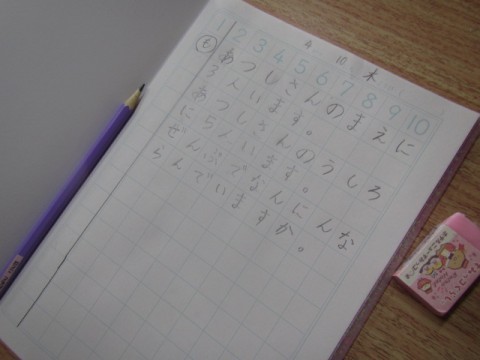 4 10 木
1 2 3 4 5 6 7 8 9 10
も あつしさんのまえに
3人います。
あつしさんのうしろ
に5人います。
ぜんぶでなんにんな
らんでいますか。